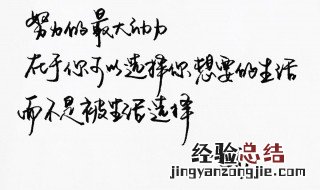 努力的最大动力
在于你可以选择你想要的生活
而不是被生活选择
经验总结
jingyanzongjie.com